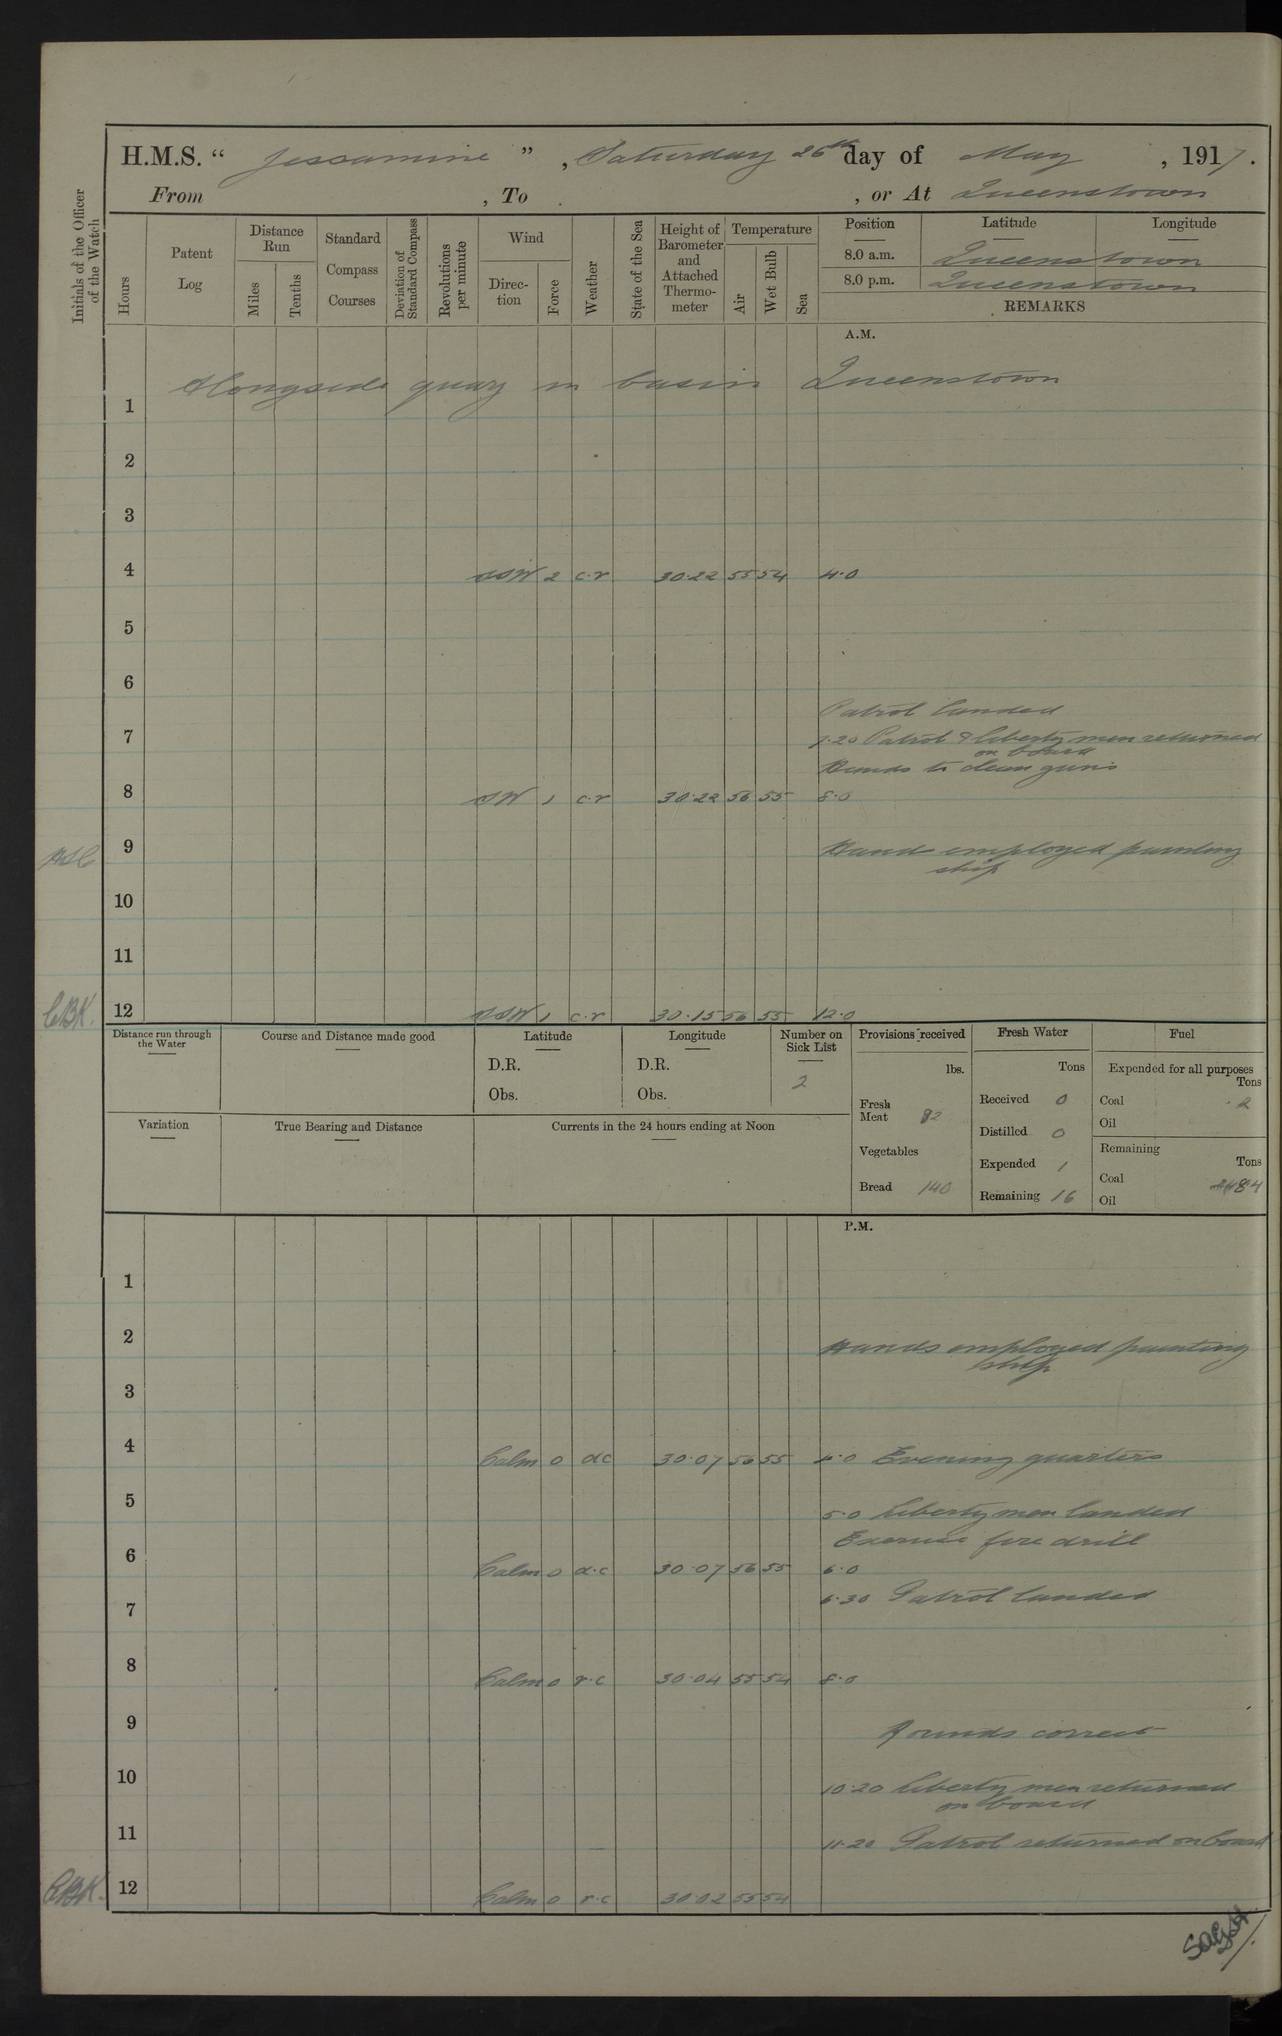 H.M.S. “ Jessamine ” , Saturday 26th day of May , 1917.
From , To , or At Queenstown
Initials of the Officer of the Watch
Hours
Patent Log
Distance Run
Miles
Tenths
Standard Compass Courses
Deviation of Standard Compass
Revolutions per minute
Wind
Direction
Force
Weather
State of the Sea
Height of Barometer and Attached Thermometer
Temperature
Air
Wet Bulb
Sea
Position Latitude Longitude
8.0 a.m. Queenstown
8.0 p.m. Queenstown
REMARKS
A.M.
Alongside quay in basin Queenstown
1
2
3
4 SSW 2 c.r 30.22 55 54 4.0
5
6
Patrol landed
7 7.20 Patrol & liberty men returned
on board
Hands to clean guns
8 SW 1 c.r 30.22 56 55 8.0
9 Hands employed painting
ship
10
11
CBK. 12 SSW 1 c.r 30.15 56 55 12.0
Distance run through the Water
Course and Distance made good
Latitude
D.R.
Obs.
Longitude
D.R.
Obs.
Number on Sick List
2
Provisions received
lbs.
Fresh Meat 82
Vegetables
Bread 140
Fresh Water
Tons
Received 0
Distilled 0
Expended 1
Remaining 16
Fuel
Expended for all purposes
Tons
Coal 2
Oil
Remaining
Tons
Coal
Oil
Variation
True Bearing and Distance
Currents in the 24 hours ending at Noon
P.M.
1
2 Hands employed painting
ship
3
4 Calm 0 dc 30.07 56 55 4.0 Evening quarters
5 5.0 Liberty men landed
Exercise fire drill
6 Calm 0 d.c 30.07 56 55 6.0
6.30 Patrol landed
7
8 Calm 0 r.c 30.04 55 54 8.0
9 Rounds correct
10 10.20 Liberty men returned
on board
11 11.20 Patrol returned on board
CBK. 12 Calm 0 r.c 30.02 55 54